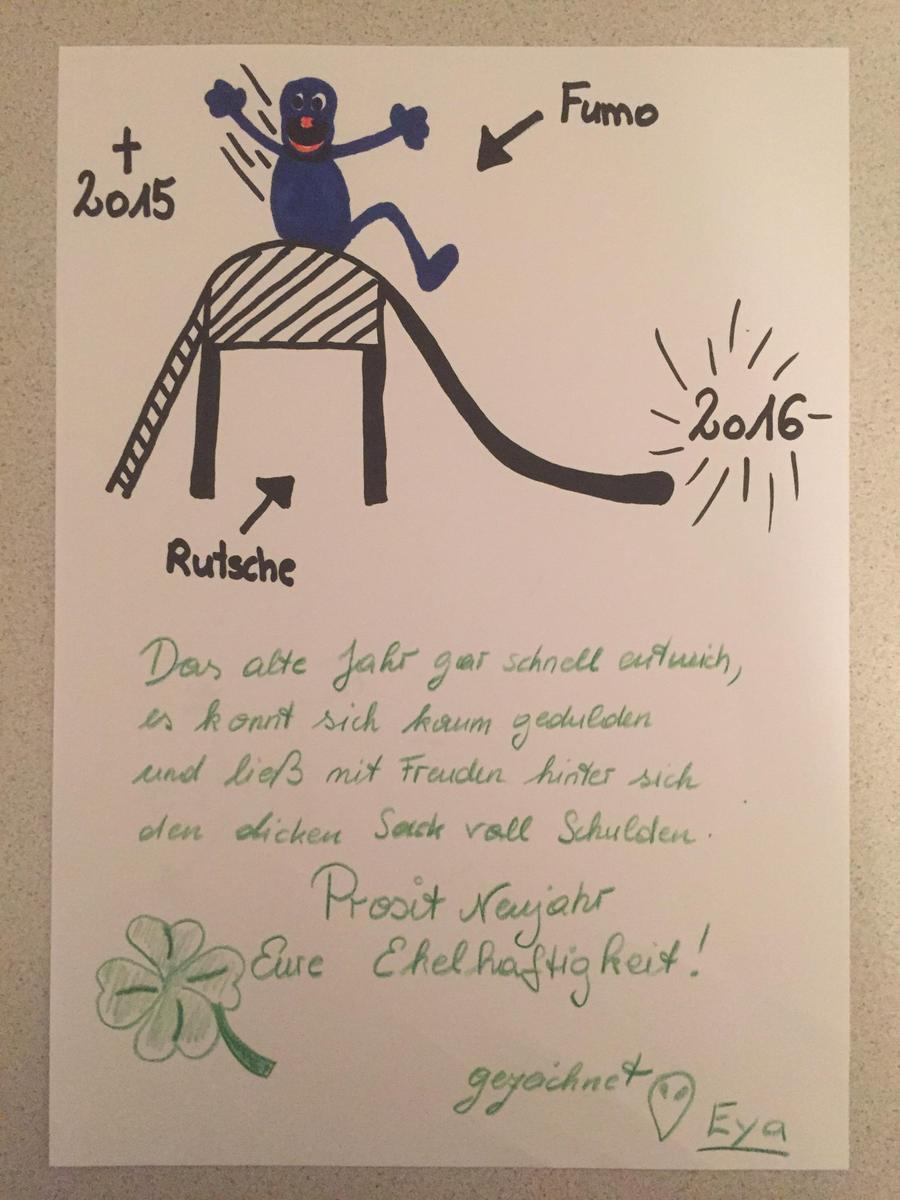 Fumo
† 2015
2016-
Rutsche
Das alte Jahr gar schnell entwich,
es konnt sich kaum gedulden
und ließ mit Freuden hinter sich
den dicken Sack voll Schulden.
Prosit Neujahr
Eure Ekelhaftigkeit!
gezeichnet
Eya